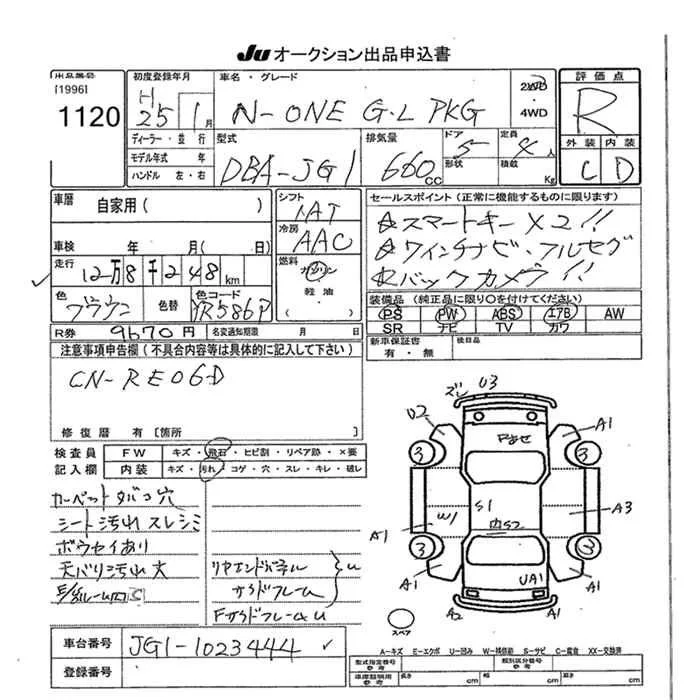 JU オークション出品申込書
出品番号
[1996]
1120
初度登録年月
H25年 1月
ディーラー・並行
モデル年式 年
ハンドル 左・右
車名・グレード
N-ONE G・L PKG
2WD
4WD
評価点
R
外装 内装
C D
型式
DBA-JG1
排気量
660cc
ドア 形状
5
定員 積載
4人
Kg
車歴 自家用( )
シフト
IAT
車検 年 月( 日)
冷房
AAC
走行
12万8千248km
燃料
ガソリン
軽油
( )
色
ブラウン
色替
色コード
YR586P
R券 9670円
名変通知期限 月 日
セールスポイント(正常に機能するものに限ります)
☆スマートキー×2!!
☆ワインチナビ、フルセグ
☆バックカメラ!!
装備品(純正品に限り○を付けてください)
PS PW ABS エアB AW
SR ナビ TV カワ
新車保証書
有・無
後日品
注意事項申告欄(不具合内容等は具体的に記入して下さい)
CN-RE06D
修復歴 有[箇所 ]
検査員
記入欄
FW キズ・飛石・ヒビ割・リペア跡・×要
内装 キズ・汚れ・コゲ・穴・スレ・キレ・破レ
カーペットタバコ穴
シート汚れスレシミ
ボウセイあり
天バリ汚れ大
リヤエンドパネル
サイドフレーム
FサイドフレームU
U
ズレ U3
U2
A1
3
3
Fアセ
S1
内S2
W1
A1
A3
3
3
A1
A1
UA1
A2
A1
スペア
A-キズ E-エクボ U-凹み W-補修跡 S-サビ C-腐食 XX-交換済
車台番号 JG1-1023444
登録番号
型式指定番号
類別区分番号
車庫証明用
長さ cm 幅 cm 高さ cm